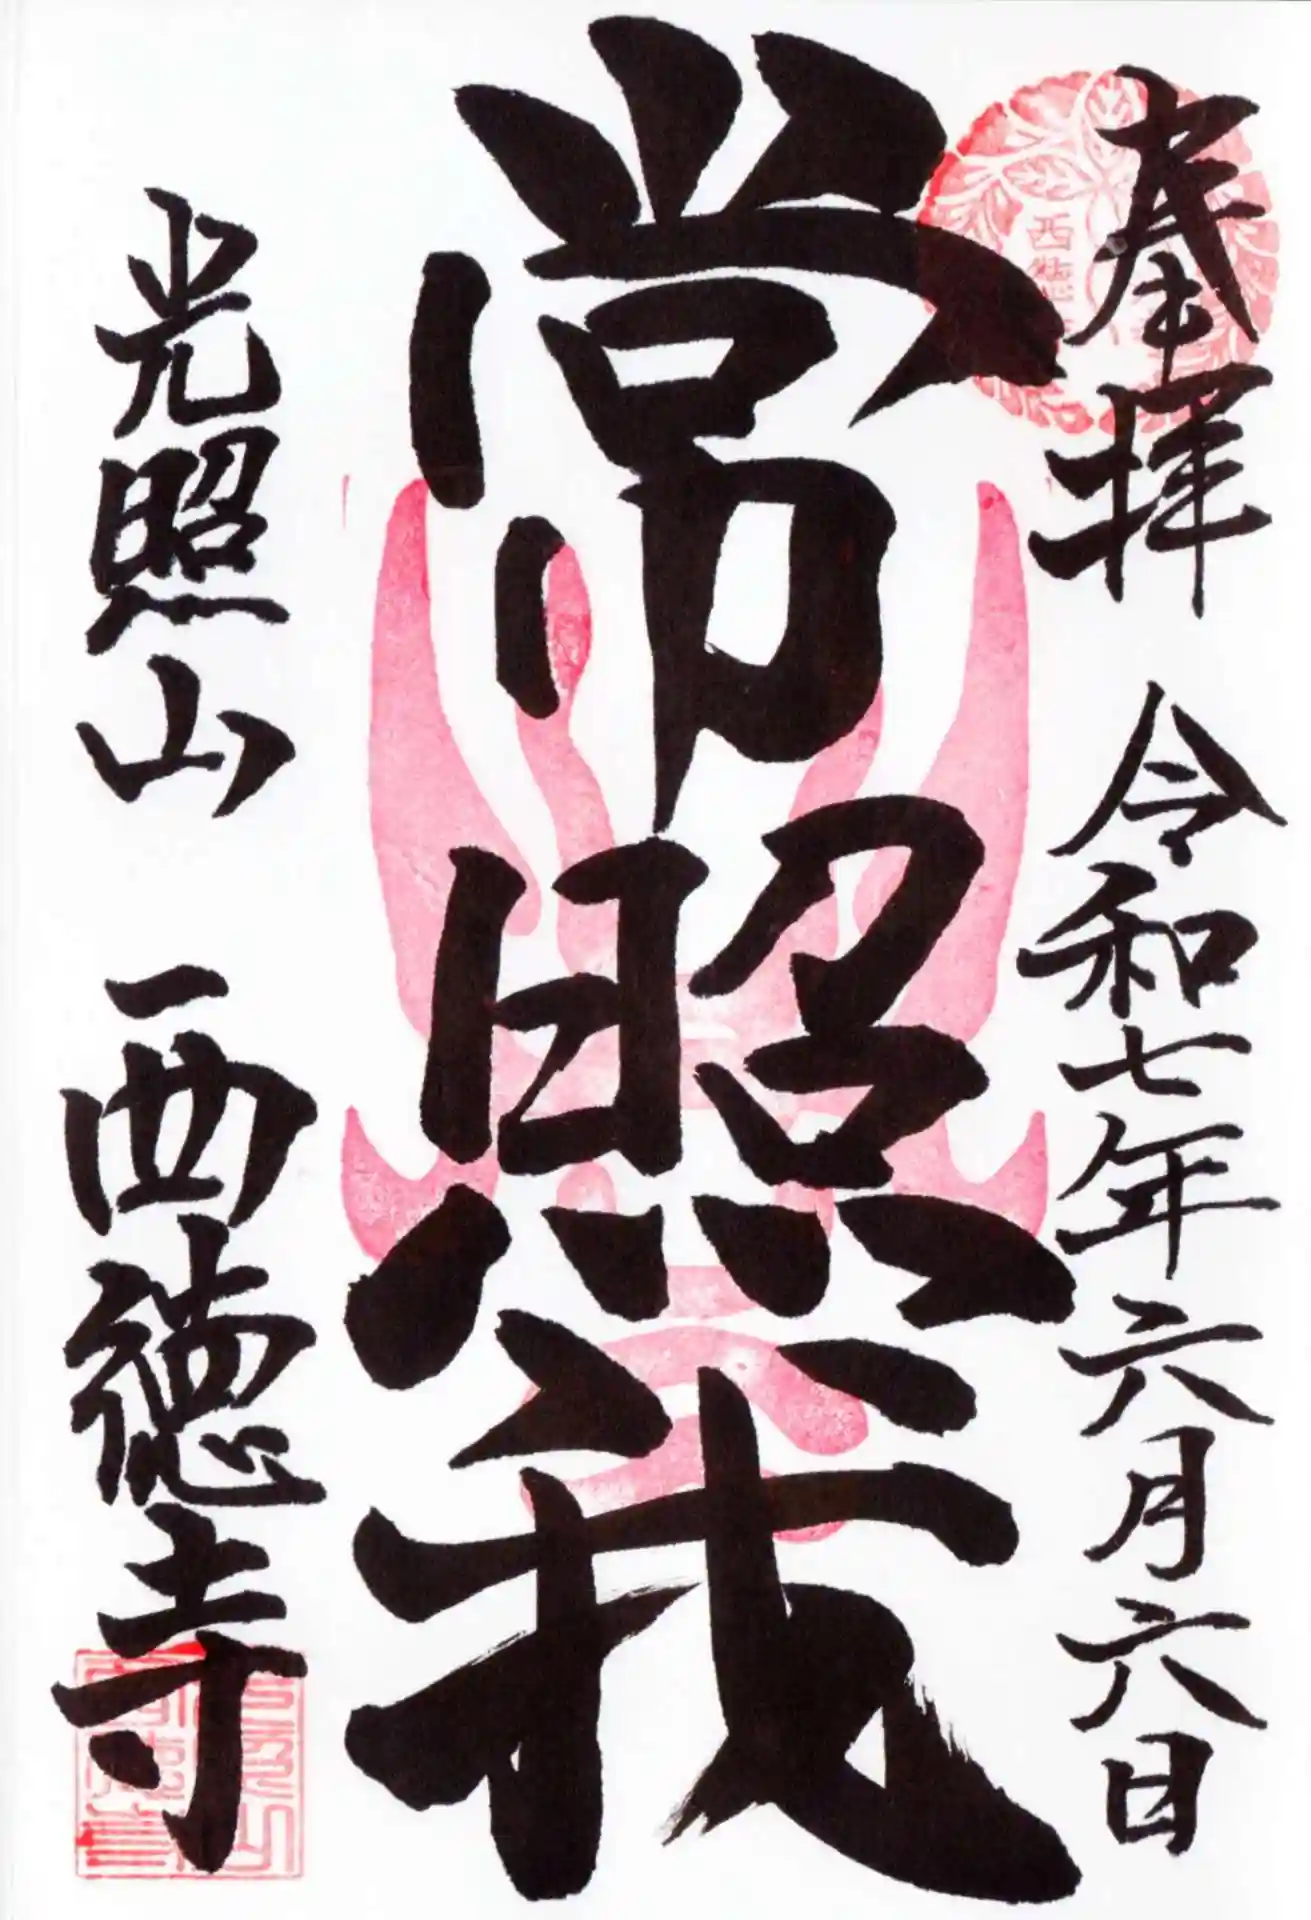 奉拝 令和七年六月六日
常照我
光照山 西徳寺
西徳